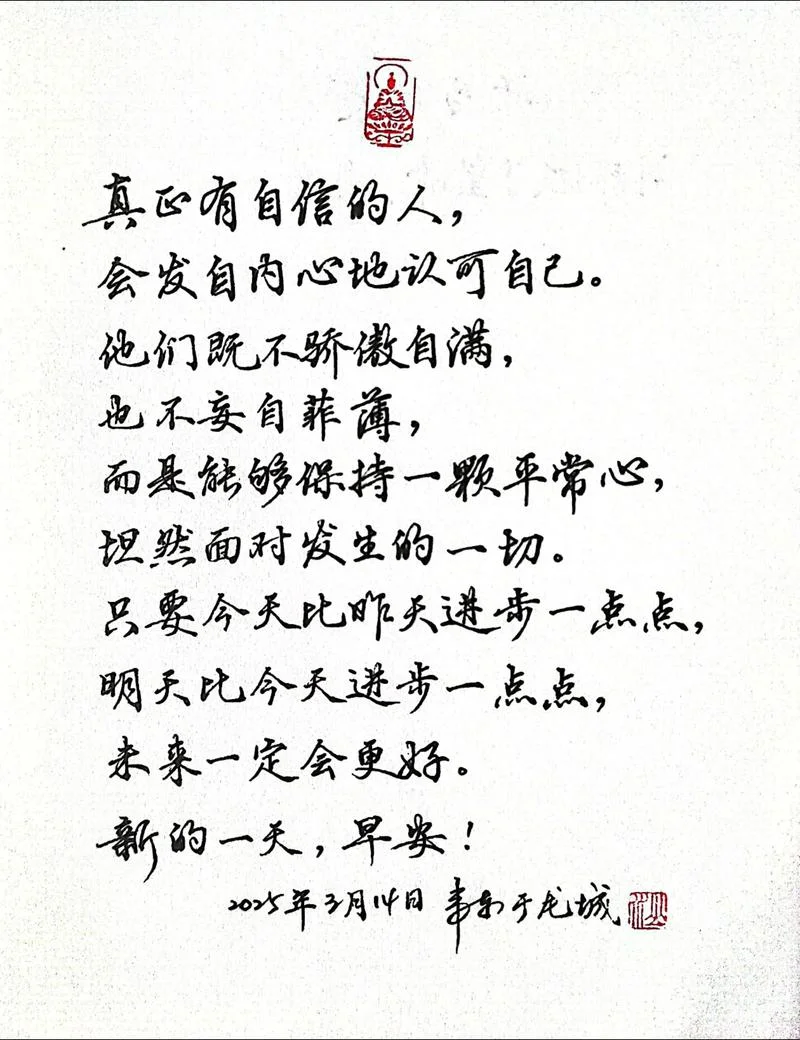 真正有自信的人，
会发自内心地认可自己。
他们既不骄傲自满，
也不妄自菲薄，
而是能够保持一颗平常心，
坦然面对发生的一切。
只要今天比昨天进步一点点，
明天比今天进步一点点，
未来一定会更好。
新的一天，早安！
2025年3月14日 于龙城